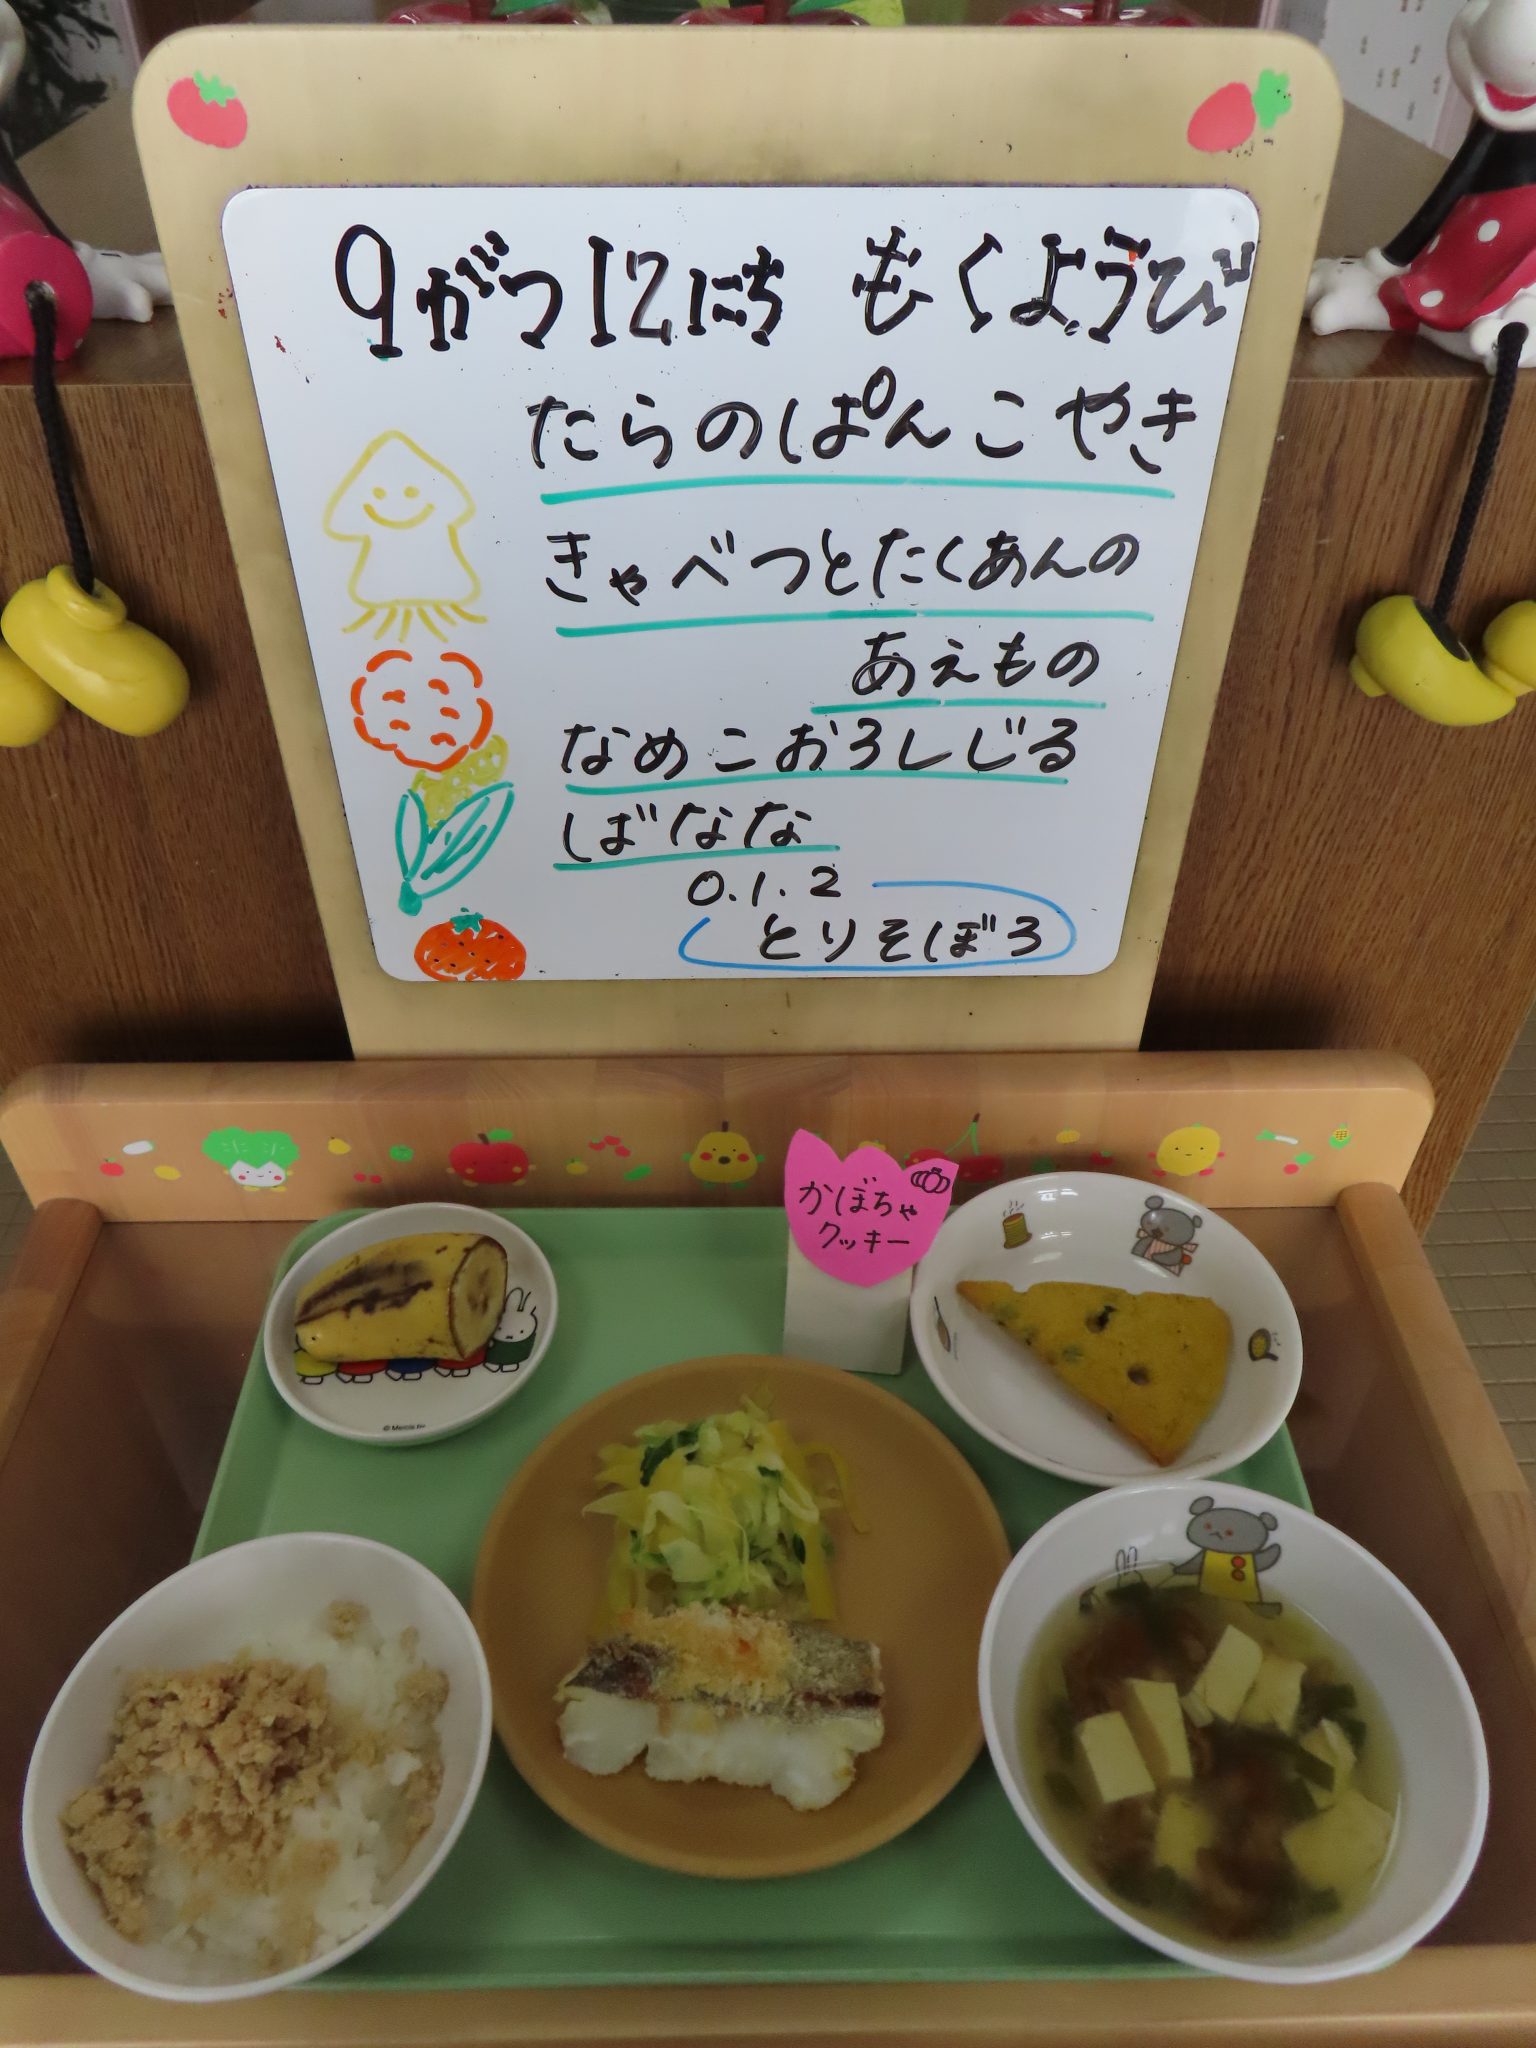 9がつ12にち もくようび
たらのぱんこやき
きゃべつとたくあんの
あえもの
なめこおろしじる
ばなな
0.1.2
とりそぼろ
かぼちゃ
クッキー
© Mercis bv